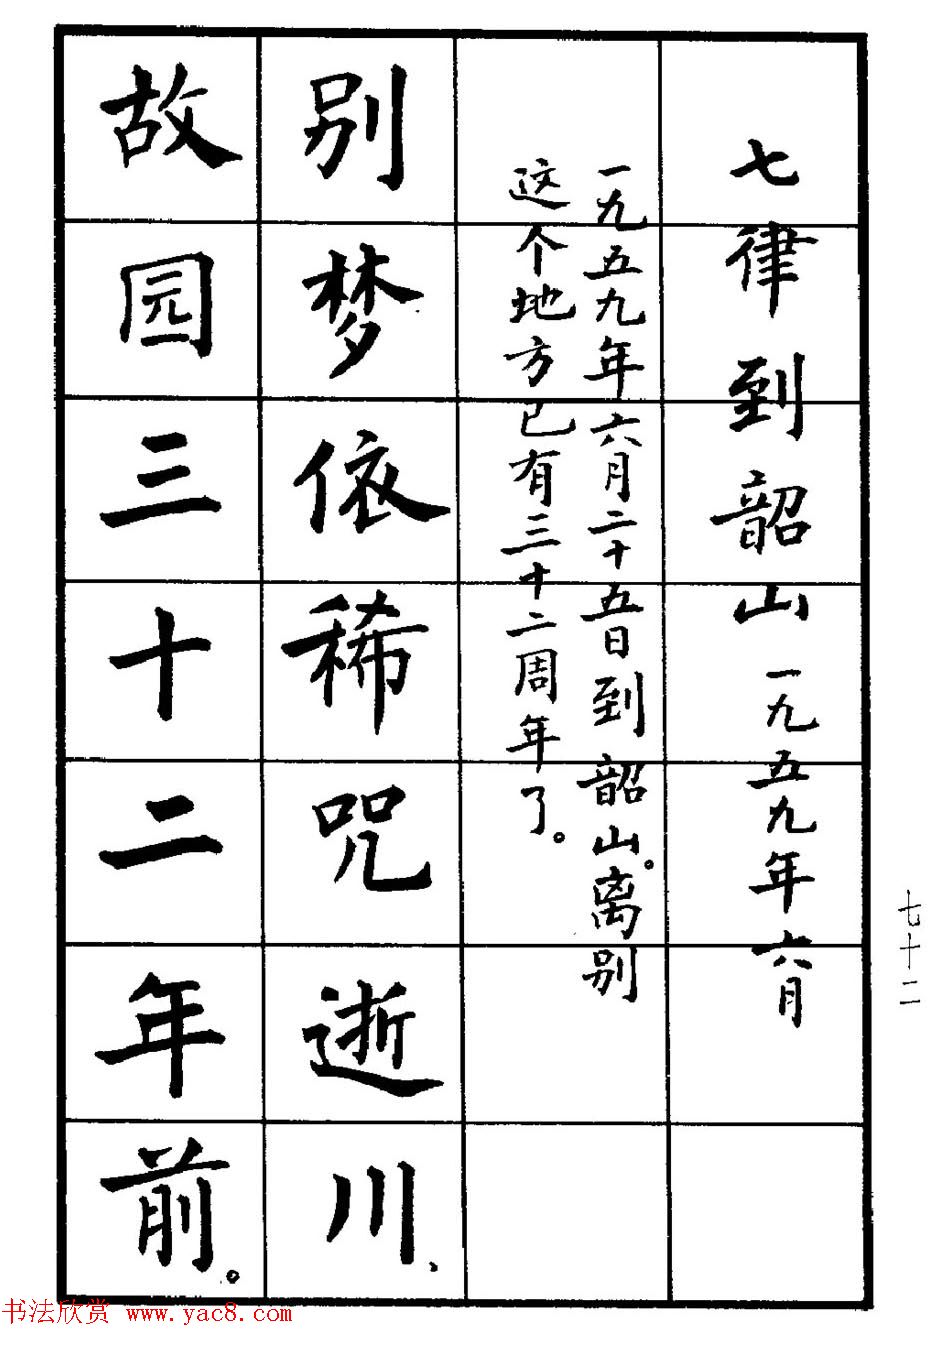 七律 到韶山 一九五九年六月
一九五九年六月二十五日到韶山。离别
这个地方已有三十二周年了。
别梦依稀咒逝川、
故园三十二年前。
七十二
书法欣赏 www.yac8.com